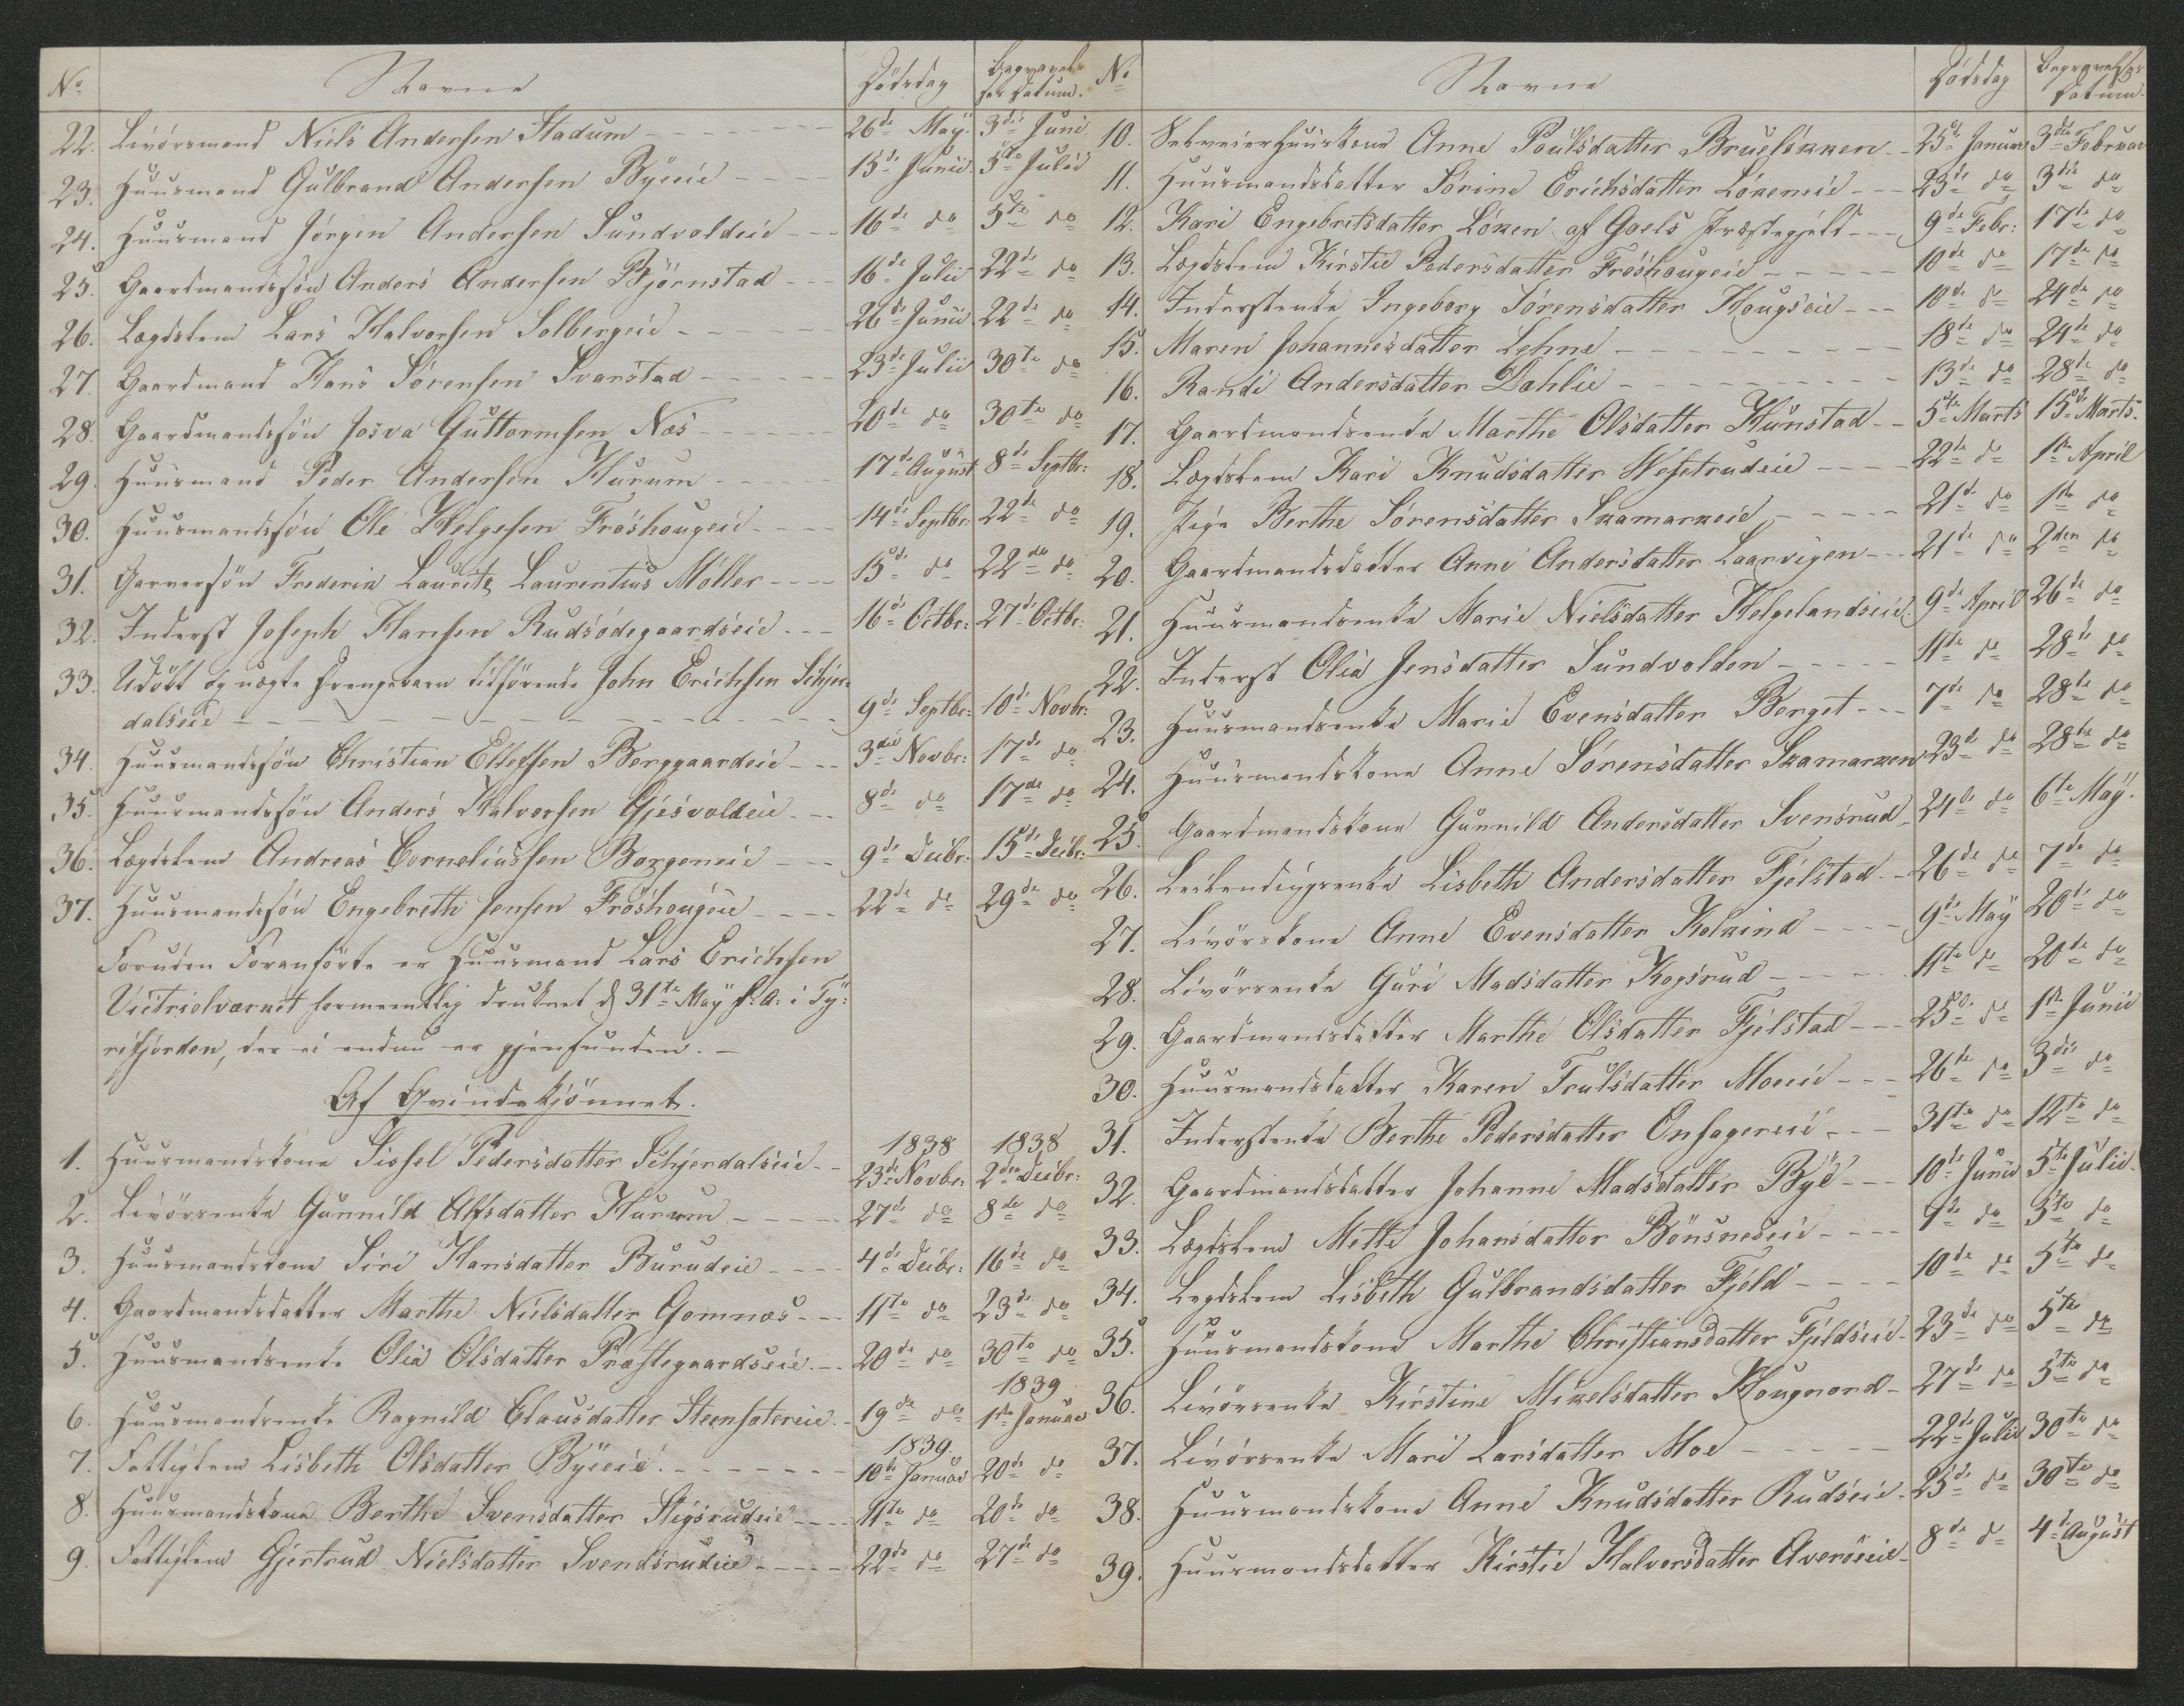 No Navne Dödsdag Begravelses Datum.
22. Livörsmand Niels Andersen Stadum 26de May 3die Juni
23. Huusmand Gulbrand Andersen Byeeie 15de Junii 5te Julii
24. Huusmand Jörgen Andersen Sundvoldeie 16de do 5te do
25. Gaardmandssön Anders Andersen Björnstad 16de Julii 22de do
26. Lægdslem Lars Halvorsen Solbergeie 26de Junii 22de do
27. Gaardmand Hans Sörensen Svarstad 23de Julii 30te do
28. Gaardmandssön Josva Guttormsen Næs 20de do 30te do
29. Huusmand Peder Andersen Hurum 17de August 8de Septbr:
30. Huusmandssön Ole Helgesen Fröshougeie 14de Septbr: 22de do
31. Garversön Frederik Lauritz Laurentius Möller 15de do 22de do
32. Inderst Joseph Hansen Rudsödegaardseie 16de Octbr: 27de Octbr:
33. Udöbt og uægte Drengebarn tilhörende John Erichsen Schjer-
dalseie 9de Septbr: 10de Novbr:
34. Huusmandssön Christian Ellefsen Berggaardeie 3die Novbr: 17de do
35. Huusmandssön Anders Halvorsen Gjesvoldeie 8de do 17de do
36. Lægdslem Andreas Corneliussen Borgeneie 9de Decbr: 15de Decbr:
37. Huusmandssön Engebreth Jensen Fröshougeie 22de do 29de do
Foruden Foranförte er Huusmand Lars Erichsen
Victrielværket formeentlig druknet d. 31te May d. A. i Ty-
rifjorden, der ei endnu er gjenfunden.
Af Qvindekjönnet.
1838 1838
1. Huusmandskone Sissel Pedersdatter Schjerdalseie 23de Novbr: 2den Decbr:
2. Livörsenke Gunnild Alfsdatter Hurum 27de do 8de do
3. Huusmandskone Siri Hansdatter Burudeie 4de Decbr: 16de do
4. Gaardmandsdatter Marthe Nielsdatter Gomnæs 11te do 23de do
5. Huusmandsenke Olia Olsdatter Præstegaardseie 20de do 30te do
1839
6. Huusmandsenke Ragnild Clausdatter Steensætereie 19de do 1ste Januar
1839.
7. Fattiglem Lisbeth Olsdatter Byeeie 10de Januar 20de do
8. Huusmandskone Berthe Svensdatter Stigsrudeie 11te do 20de do
9. Fattiglem Gjertrud Nielsdatter Svendsrudeie 22de do 27de do
No Navne Dödsdag Begravelses Datum.
10. Selveierhuuskone Anne Poulsdatter Bruelökken 25de Januar 3die Februar
11. Huusmandsdatter Sörine Erichsdatter Lökeneie 23de do 3die do
12. Kari Engebretsdatter Löken af Goels Præstegjeld 9de Febr: 17de do
13. Lægdslem Kirstie Pedersdatter Fröshougeie 10de do 17de do
14. Inderstenke Ingeborg Sörensdatter Hougseie 10de do 24de do
15. Maren Johannesdatter Lehne 18de do 24de do
16. Randi Andersdatter Dæhlie 13de do 28de do
17. Gaardmandsenke Marthe Olsdatter Hunstad 5te Marts 15de Marts.
18. Lægdslem Kari Knudsdatter Wesetrudeie 22de do 1ste April
19. Pige Berthe Sörensdatter Skamarkeie 21de do 1ste do
20. Gaardmandsdatter Anne Andersdatter Laarvigen 21de do 2den do
21. Huusmandsenke Marie Nielsdatter Helgelandseie 9de April 26de do
22. Inderst Olia Jensdatter Sundvolden 11te do 28de do
23. Huusmandsenke Marie Evensdatter Berget 7de do 28de do
24. Huusmandskone Anne Sörensdatter Skamarken 23de do 28de do
25. Gaardmandskone Gunnild Andersdatter Svensrud 24de do 6te May.
26. Leilendingsenke Lisbeth Andersdatter Fjelstad 26de do 7de do
27. Livörskone Anne Evensdatter Kolkind 9de May 20de do
28. Livörsenke Guri Madsdatter Kogsrud 11te do 20de do
29. Gaardmandsdatter Marthe Olsdatter Fjelstad 25de do 1ste Junii
30. Huusmandsdatter Karen Trulsdatter Moeeie 26de do 3die do
31. Inderstenke Berthe Pedersdatter Onsagereie 31te do 12te do
32. Gaardmandsdatter Johanne Madsdatter Bye 10de Junii 5te Julii
33. Lægdslem Mette Johansdatter Bönsneseie 9de do 5te do
34. Lægdslem Lisbeth Gulbrandsdatter Fjeld 10de do 5te do
35. Huusmandskone Marthe Christiansdatter Fjeldseie 23de do 5te do
36. Livörsenke Kirstine Mikelsdatter Hougnord 27de do 5te do
37. Livörsenke Mari Larsdatter Moe 22de Julii 30te do
38. Huusmandskone Anne Knudsdatter Rudseie 25de do 30te do
39. Huusmandsdatter Kirstie Halvorsdatter Averöeeie 8de do 4de August